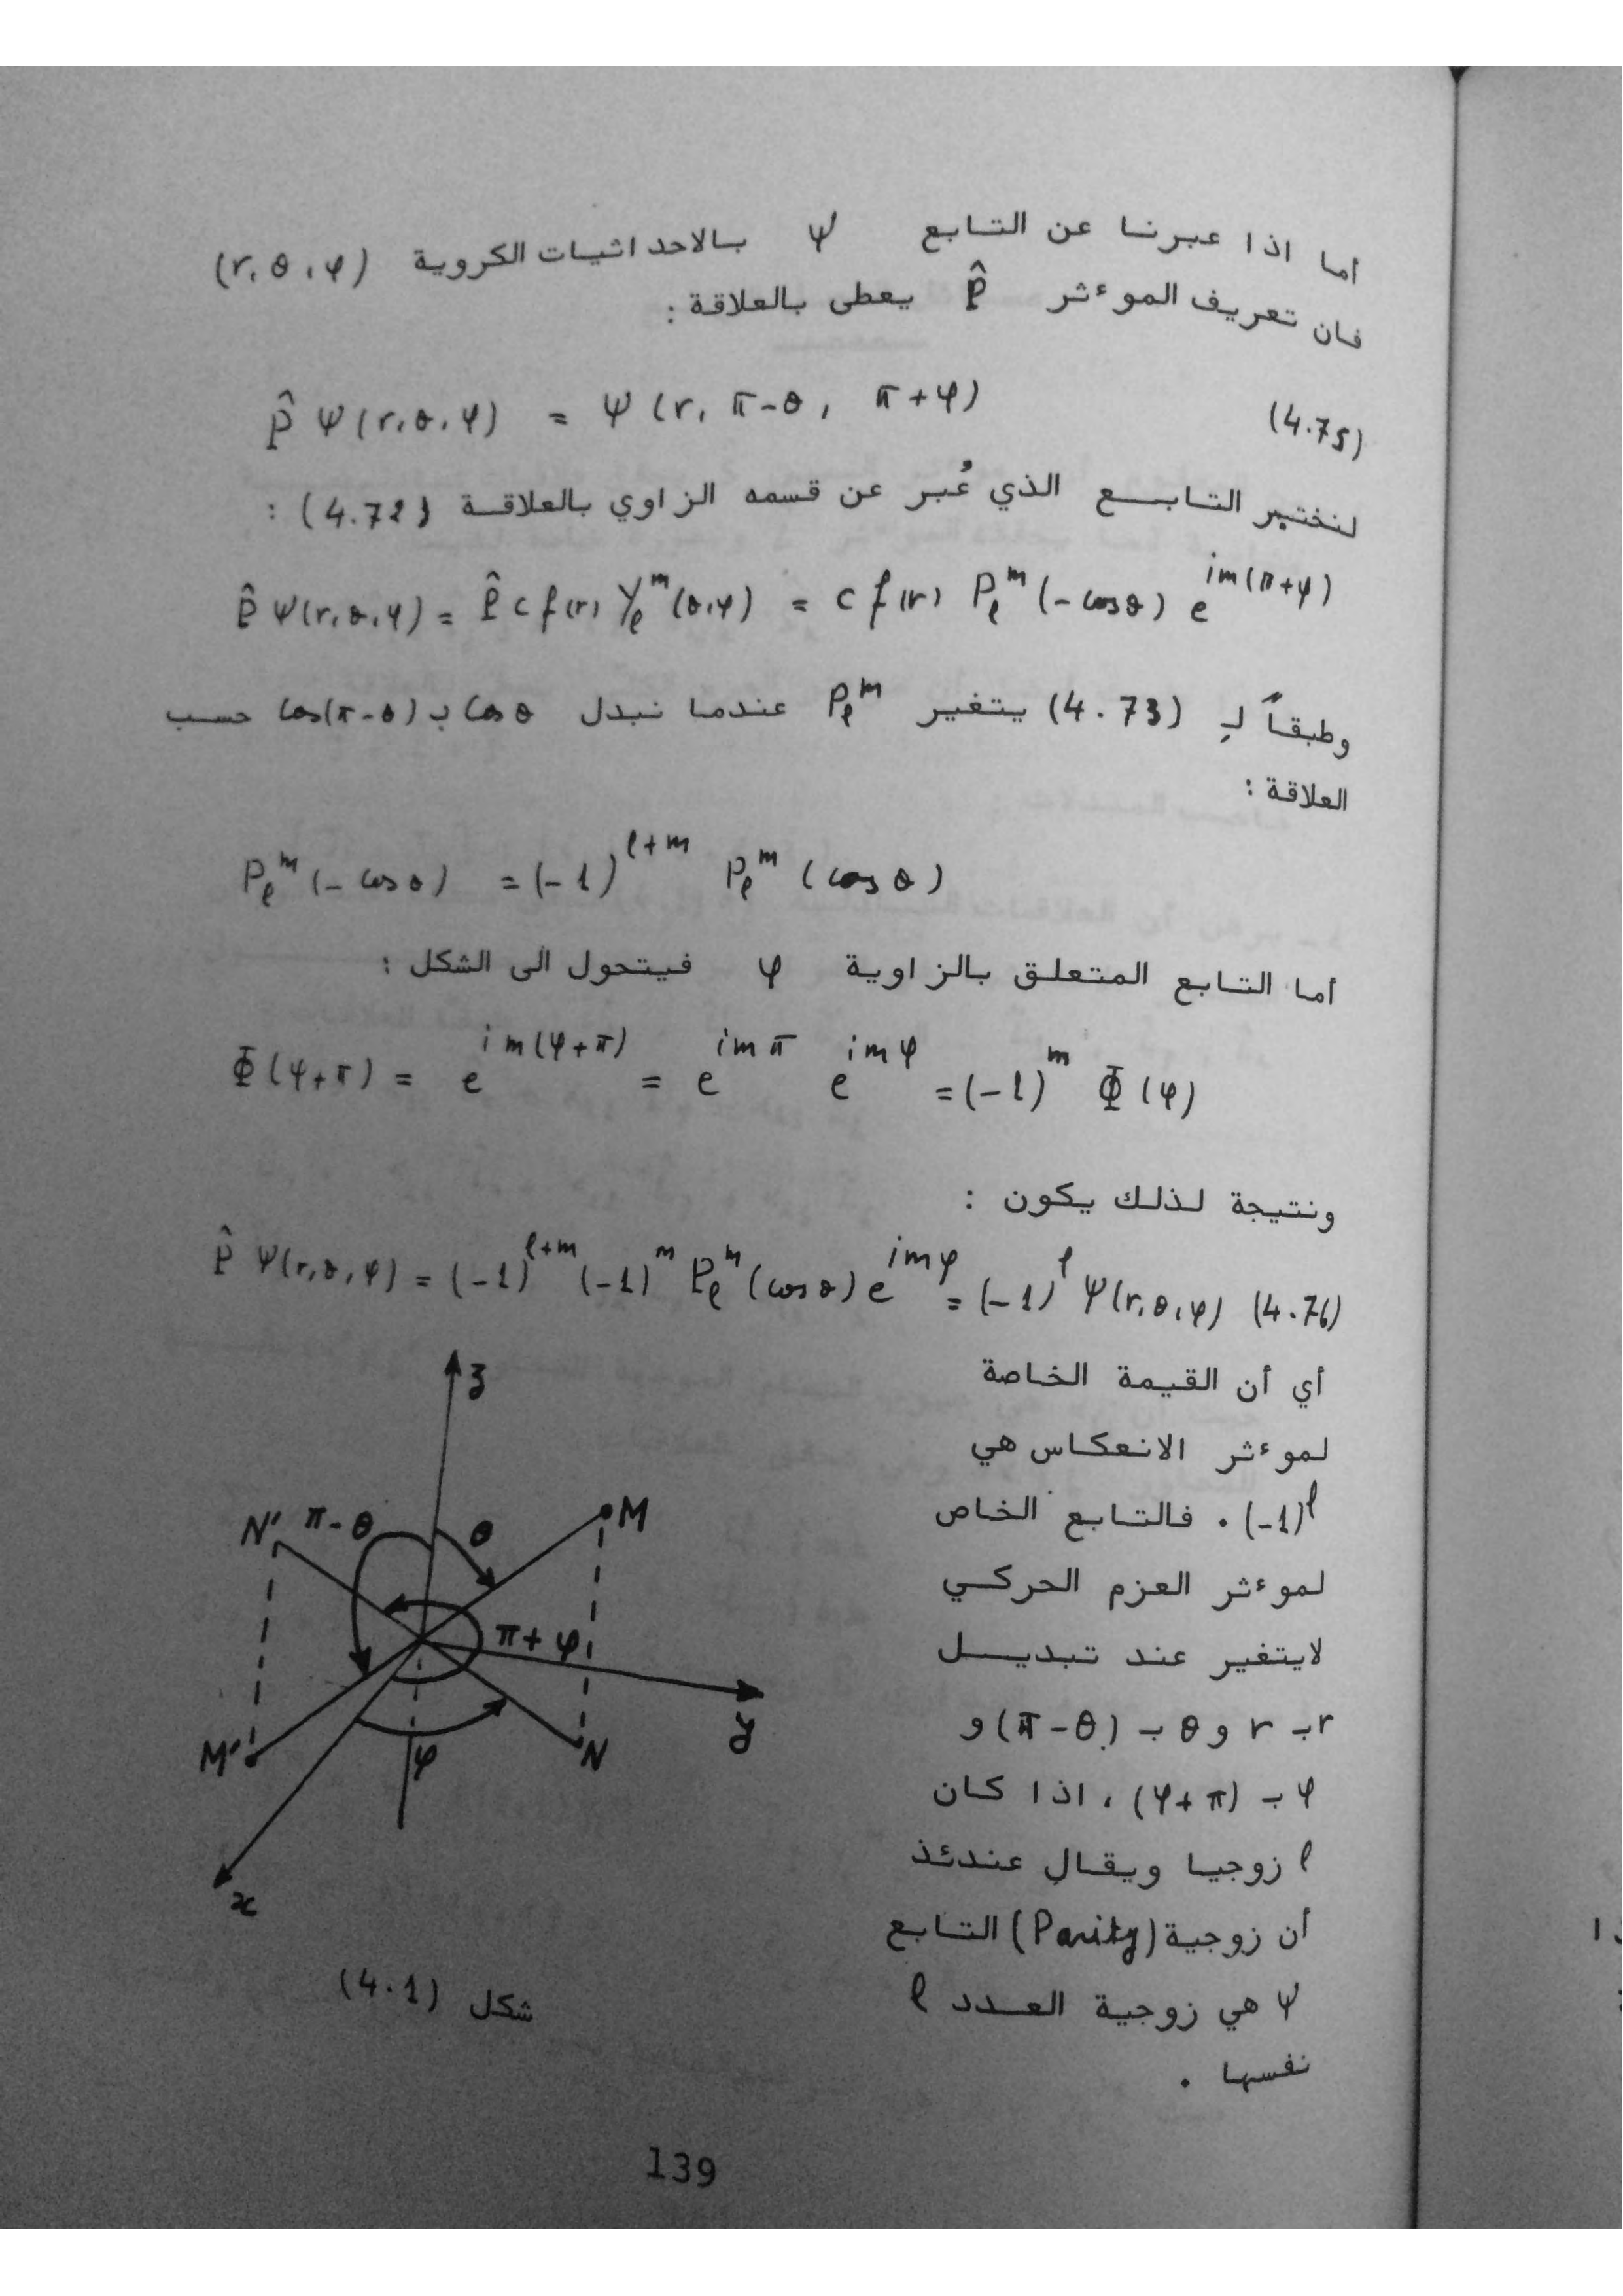 أما اذا عبرنا عن التابع ψ بالاحداثيات الكروية (r, θ, φ)
فان تعريف الموءثر P̂ يعطى بالعلاقة :
P̂ ψ(r, θ, φ) = ψ(r, π-θ, π+φ) (4.75)
لنختبر التابع الذي عُبر عن قسمه الزاوي بالعلاقة (4.72) :
P̂ ψ(r, θ, φ) = P̂ c f(r) Yₗᵐ(θ, φ) = c f(r) Pₗᵐ(-cosθ) e^{im(π+φ)}
وطبقاً لـِ (4.73) يتغير Pₗᵐ عندما نبدل cos θ بـ cos(π-θ) حسب
العلاقة :
Pₗᵐ(-cosθ) = (-1)^{ℓ+m} Pₗᵐ(cosθ)
أما التابع المتعلق بالزاوية φ فيتحول الى الشكل :
Φ(φ+π) = e^{im(φ+π)} = e^{imπ} e^{imφ} = (-1)^m Φ(φ)
ونتيجة لذلك يكون :
P̂ ψ(r, θ, φ) = (-1)^{ℓ+m} (-1)^m Pₗᵐ(cosθ) e^{imφ} = (-1)^ℓ ψ(r, θ, φ) (4.76)
أي أن القيمة الخاصة
لموءثر الانعكاس هي
(-1)^ℓ . فالتابع الخاص
لموءثر العزم الحركي
لايتغير عند تبديل
r بـ r و θ بـ (π-θ) و
φ بـ (φ+π) ، اذا كان
ℓ زوجيا ويقال عندئذ
أن زوجية (Parity) التابع
ψ هي زوجية العدد ℓ
نفسها .
z
N' π-θ θ M
π+φ
y
M' φ N
x
شكل (4.1)
139